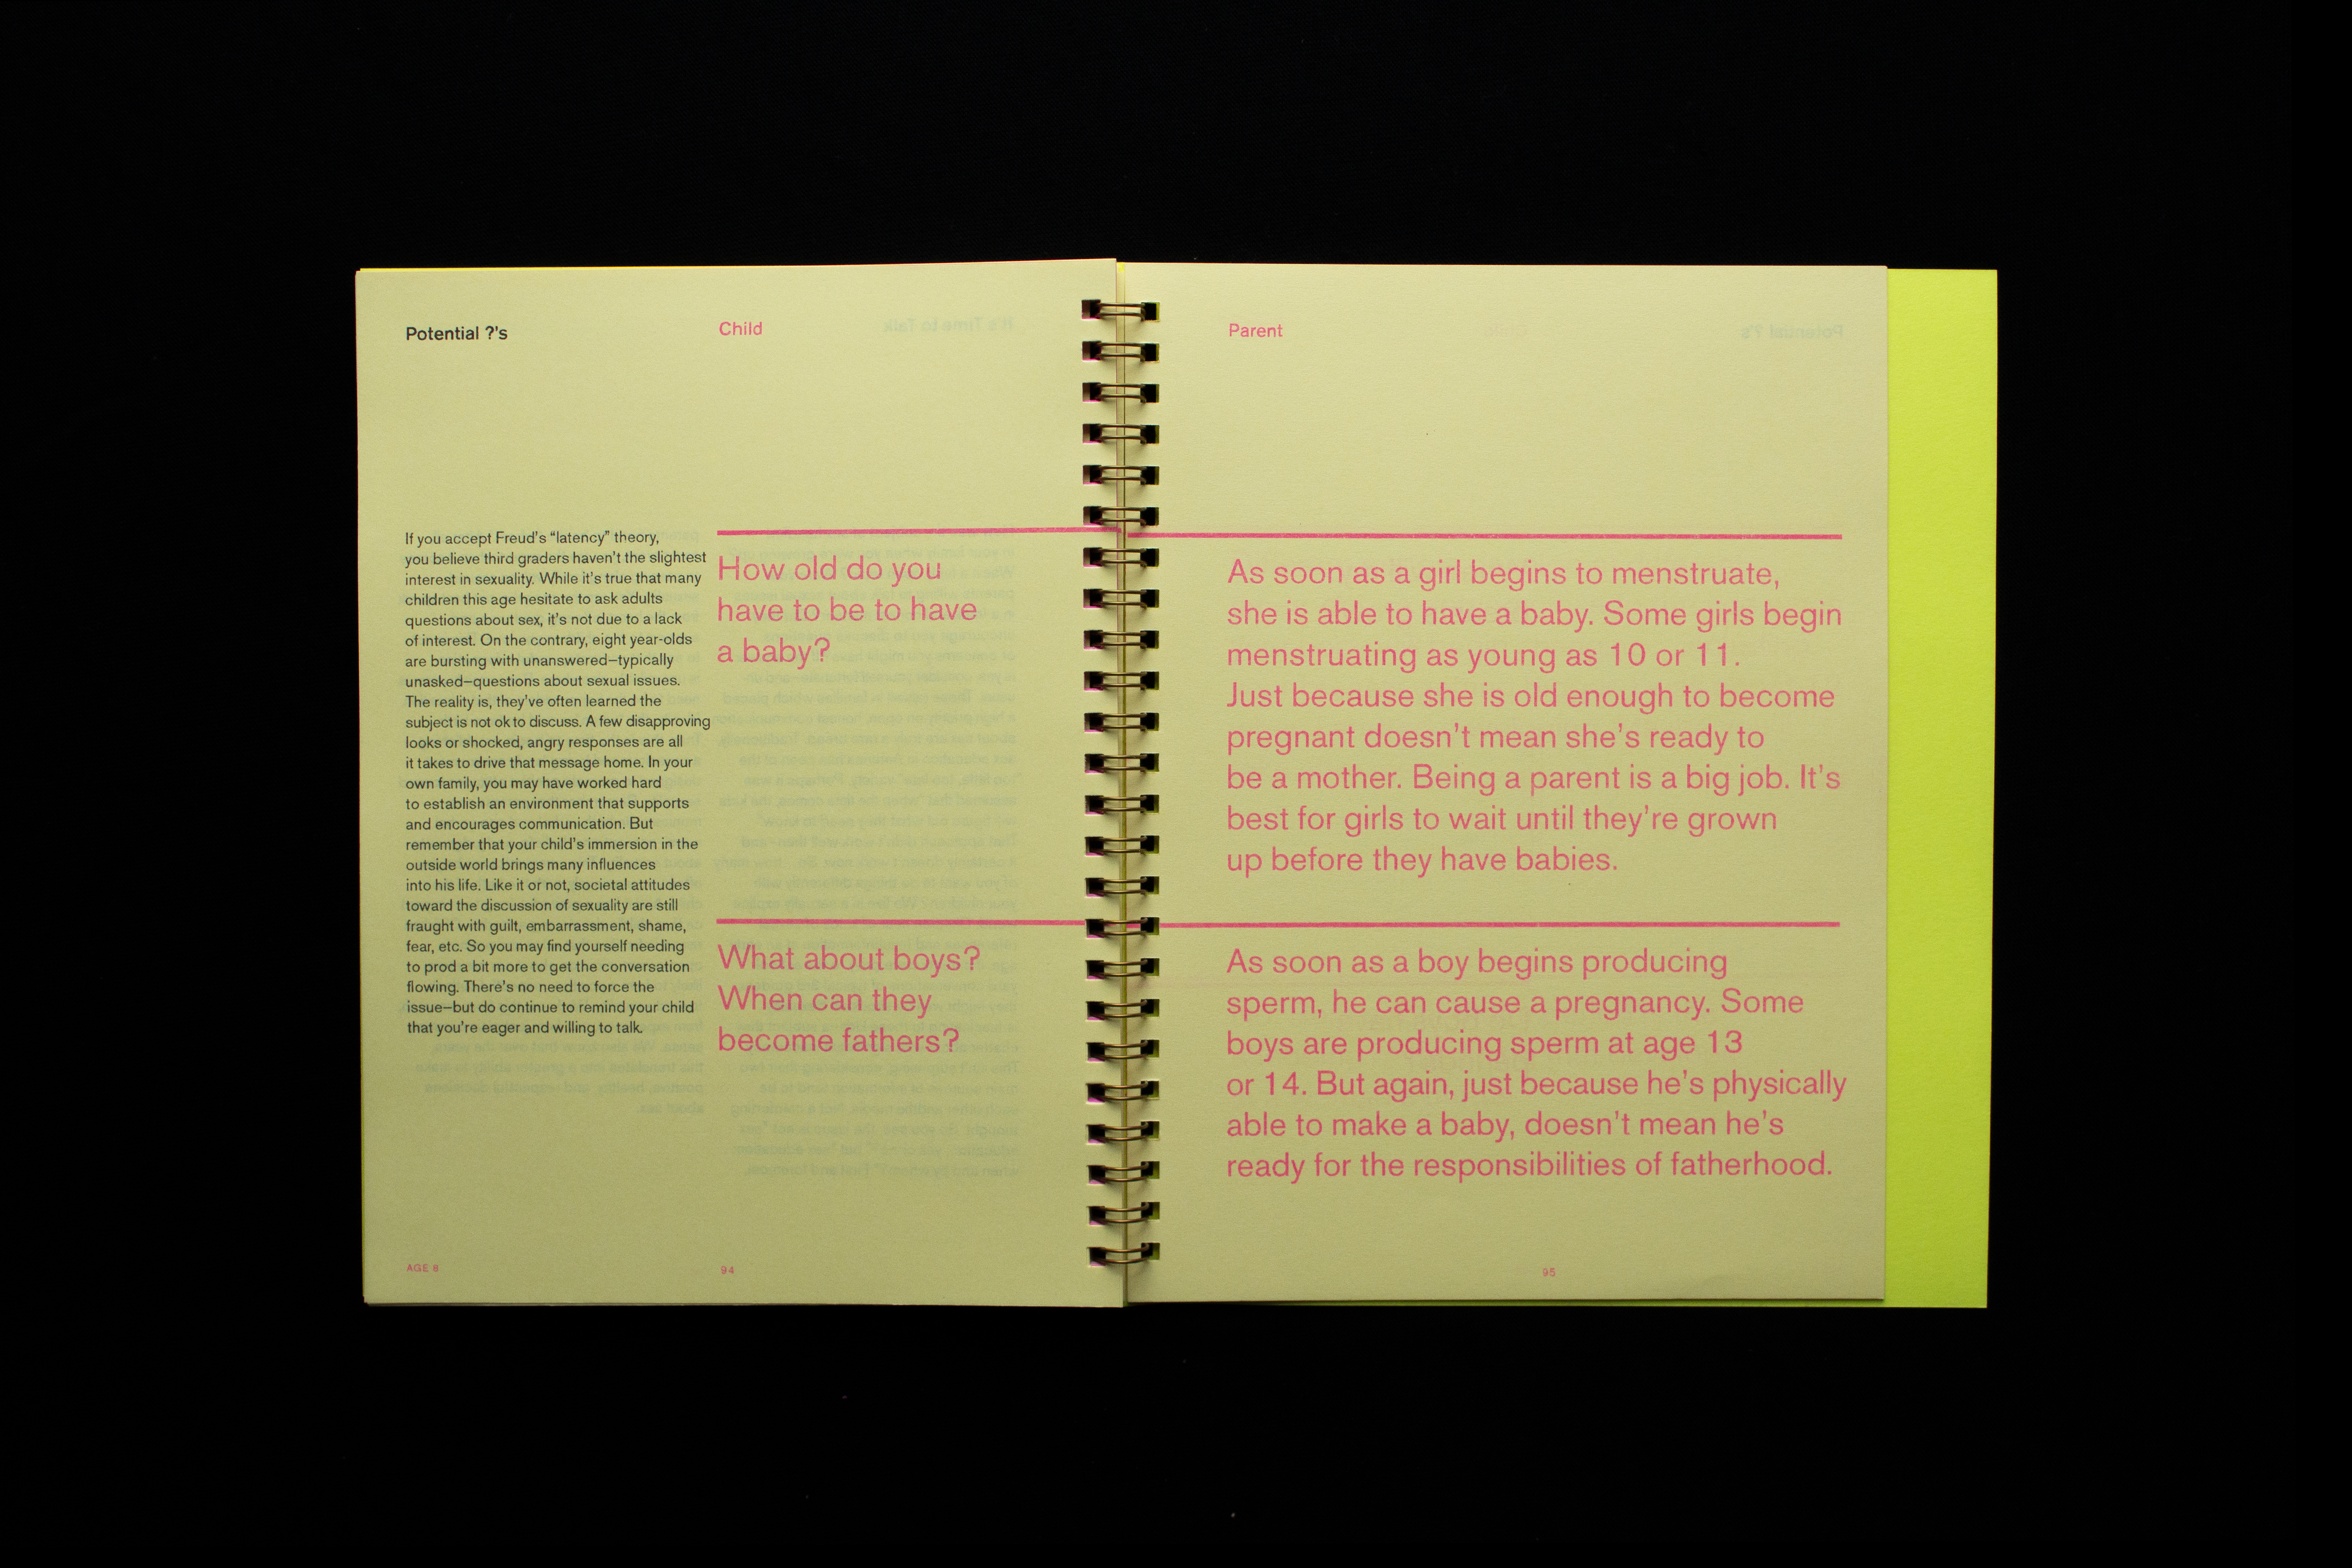 Potential ?'s
If you accept Freud's “latency” theory,
you believe third graders haven't the slightest
interest in sexuality. While it's true that many
children this age hesitate to ask adults
questions about sex, it's not due to a lack
of interest. On the contrary, eight year-olds
are bursting with unanswered–typically
unasked–questions about sexual issues.
The reality is, they've often learned the
subject is not ok to discuss. A few disapproving
looks or shocked, angry responses are all
it takes to drive that message home. In your
own family, you may have worked hard
to establish an environment that supports
and encourages communication. But
remember that your child's immersion in the
outside world brings many influences
into his life. Like it or not, societal attitudes
toward the discussion of sexuality are still
fraught with guilt, embarrassment, shame,
fear, etc. So you may find yourself needing
to prod a bit more to get the conversation
flowing. There's no need to force the
issue–but do continue to remind your child
that you're eager and willing to talk.
AGE 8
Child
How old do you
have to be to have
a baby?
What about boys?
When can they
become fathers?
94
Parent
As soon as a girl begins to menstruate,
she is able to have a baby. Some girls begin
menstruating as young as 10 or 11.
Just because she is old enough to become
pregnant doesn't mean she's ready to
be a mother. Being a parent is a big job. It's
best for girls to wait until they're grown
up before they have babies.
As soon as a boy begins producing
sperm, he can cause a pregnancy. Some
boys are producing sperm at age 13
or 14. But again, just because he's physically
able to make a baby, doesn't mean he's
ready for the responsibilities of fatherhood.
95